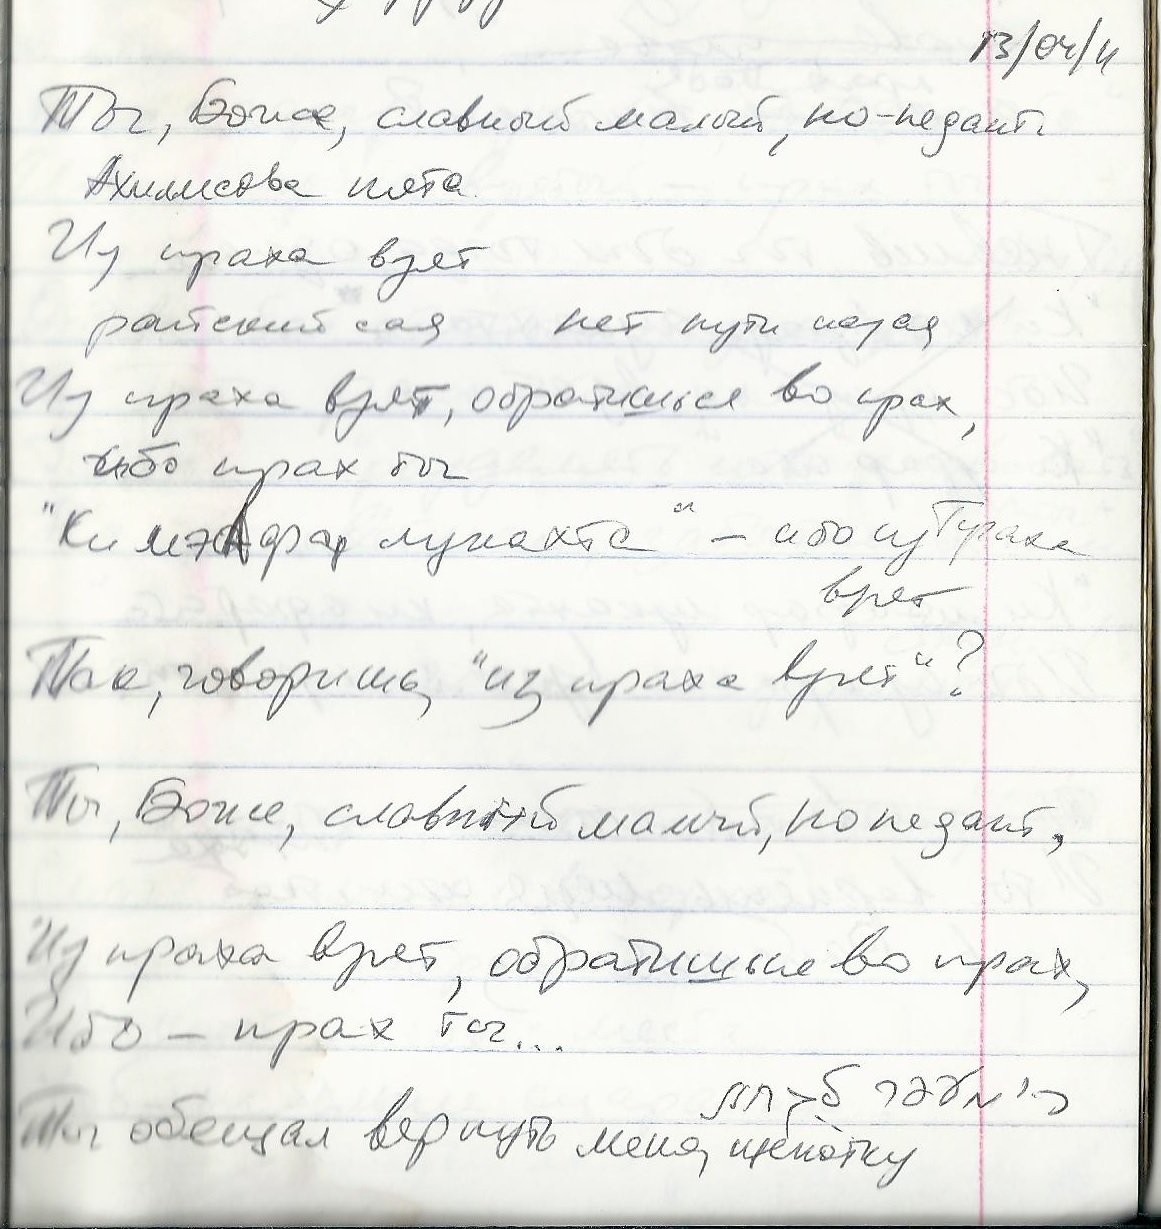 13/04/11
Ты, Боже, славный малый, но-педант.
Ахиллесова пята.
Из праха взят
райский сад нет пути назад
Из праха взят, обратишься во прах,
ибо прах ты
"Ки мэафар лукахта" – ибо из Праха
взят
Так, говоришь, "из праха взят"?
Ты, Боже, славный малый, но педант,
"Из праха взят, обратишься во прах,
Ибо – прах ты...
כי מעפר לקחת
Ты обещал вернуть меня, щепотку